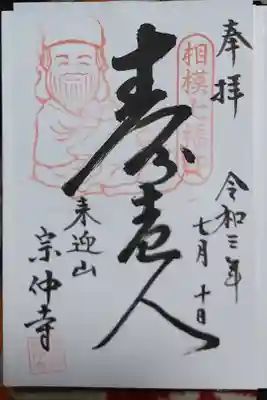 奉拝
相模七福神
令和三年
七月十日
寿老人
来迎山
宗仲寺